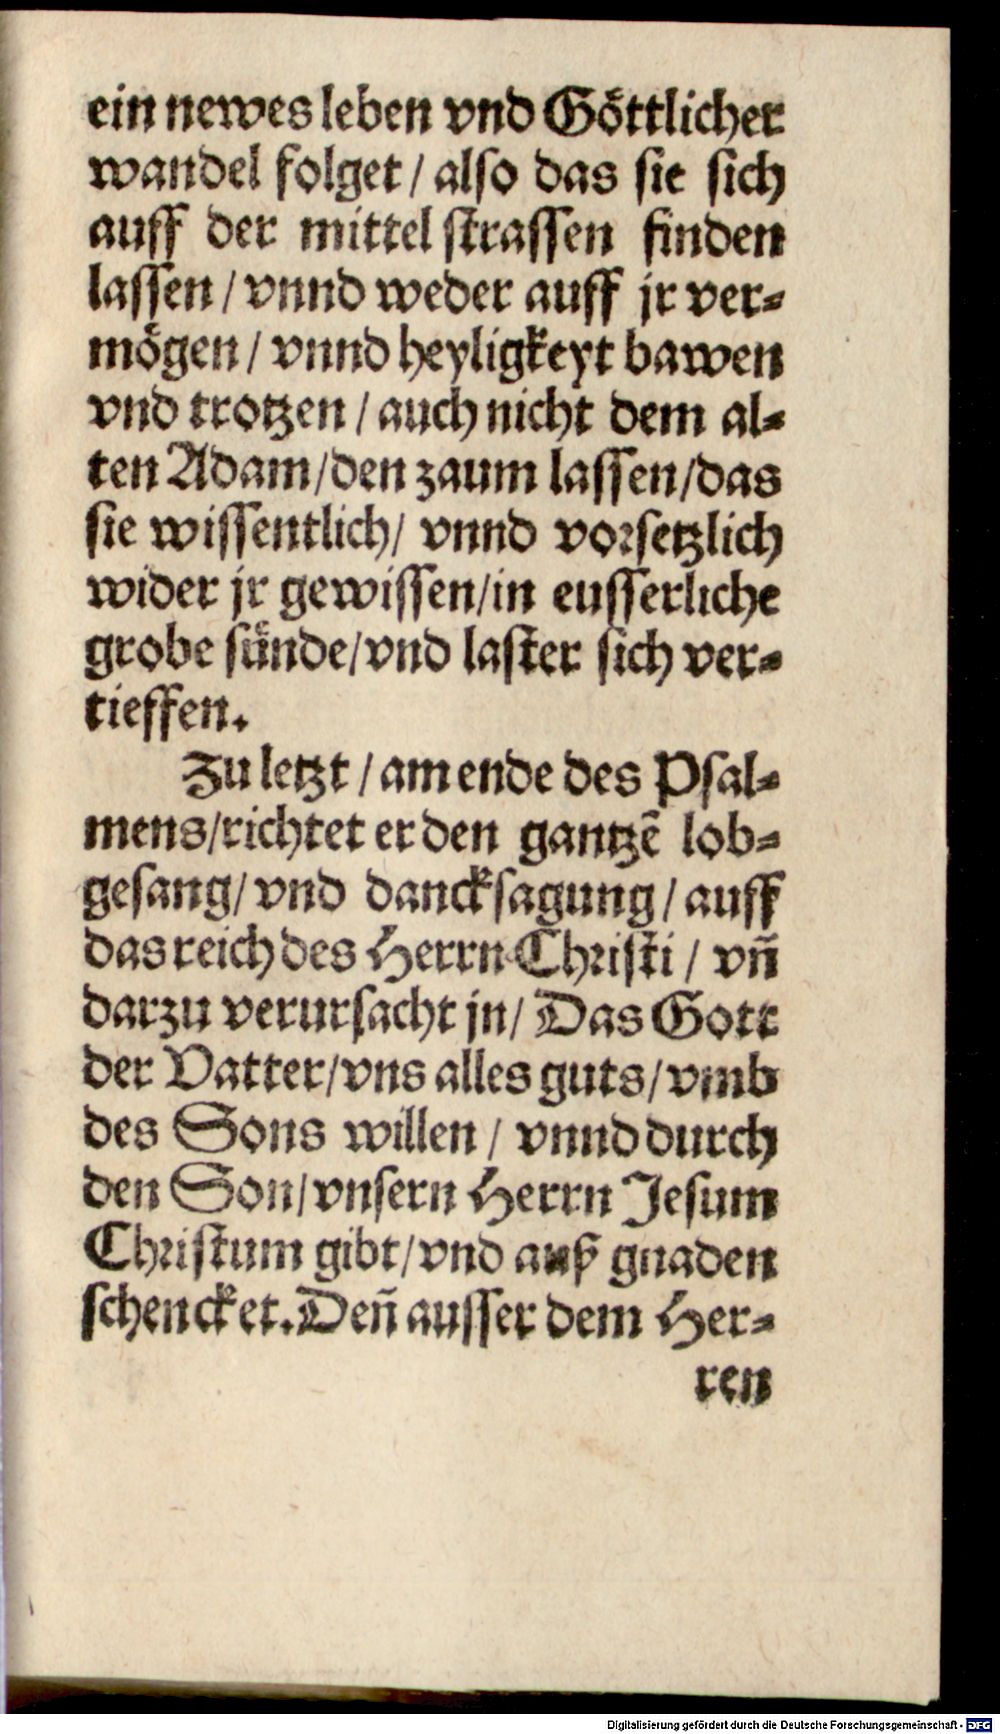 ein newes leben vnd Göttlicher
wandel folget / also das sie sich
auff der mittel strassen finden
lassen / vnnd weder auff jr ver-
mögen / vnnd heyligkeyt bawen
vnd trotzen / auch nicht dem al-
ten Adam/den zaum lassen/das
sie wissentlich/ vnnd vorsetzlich
wider jr gewissen/in eusserliche
grobe sünde/vnd laster sich ver-
tieffen.
Zu letzt / am ende des Psal-
mens/richtet er den gantzē lob-
gesang/ vnd dancksagung / auff
das reich des Herrn Christi / vñ
darzu verursacht jn/ Das Gott
der Vatter/vns alles guts/vmb
des Sons willen / vnnd durch
den Son/vnsern Herrn Jesum
Christum gibt/vnd auß gnaden
schencket. Deñ ausser dem Her-
ren
Digitalisierung gefördert durch die Deutsche Forschungsgemeinschaft - DFG